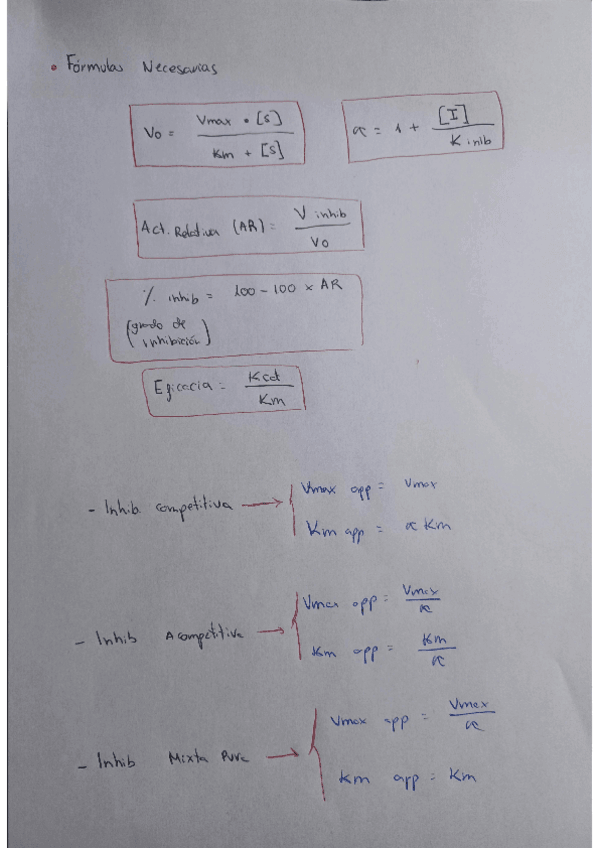 • Fórmulas Necesarias
Vo = Vmax • [S] / Km + [S]
α = 1 + [I] / K inib
Act. Relativa (AR) = V inhib / Vo
% inhib = 100 - 100 x AR
(grado de
inhibición)
Eficacia = Kcat / Km
- Inhib competitiva → { Vmax app = Vmax
Km app = α Km
- Inhib Acompetitiva → { Vmax app = Vmax / α
Km app = Km / α
- Inhib Mixta Pura → { Vmax app = Vmax / α
Km app = Km